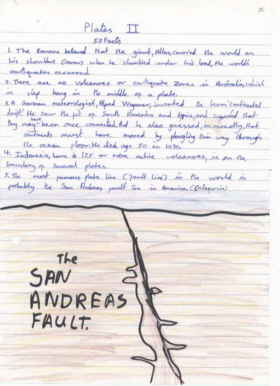 Plates II
5 Facts
1. The Romans believed that the giant, Atlas, carried the world on
his shoulders. Comans when he shuddered under his load, the world's
earthquakes occurred.
2. There are no Volcanoes or earthquake Zones in Australia, which
is slap bang in the middle of a plate.
3. A German meteorologist, Alfred Wegener, invented the term 'continental
drift'. He saw the fit of South America and Africa, and figured that
they may have once been connected. But he also guessed, incorrectly, that
continents must have moved by ploughing their way through
the ocean floor. He died age 50 in 1930.
4. Indonesia, home to 125 or more active volcanoes, is on the
boundary of several plates.
5. The most famous plate line (fault line) in the world is
probably the San Andreas fault line in America (California)
The
SAN
ANDREAS
FAULT.